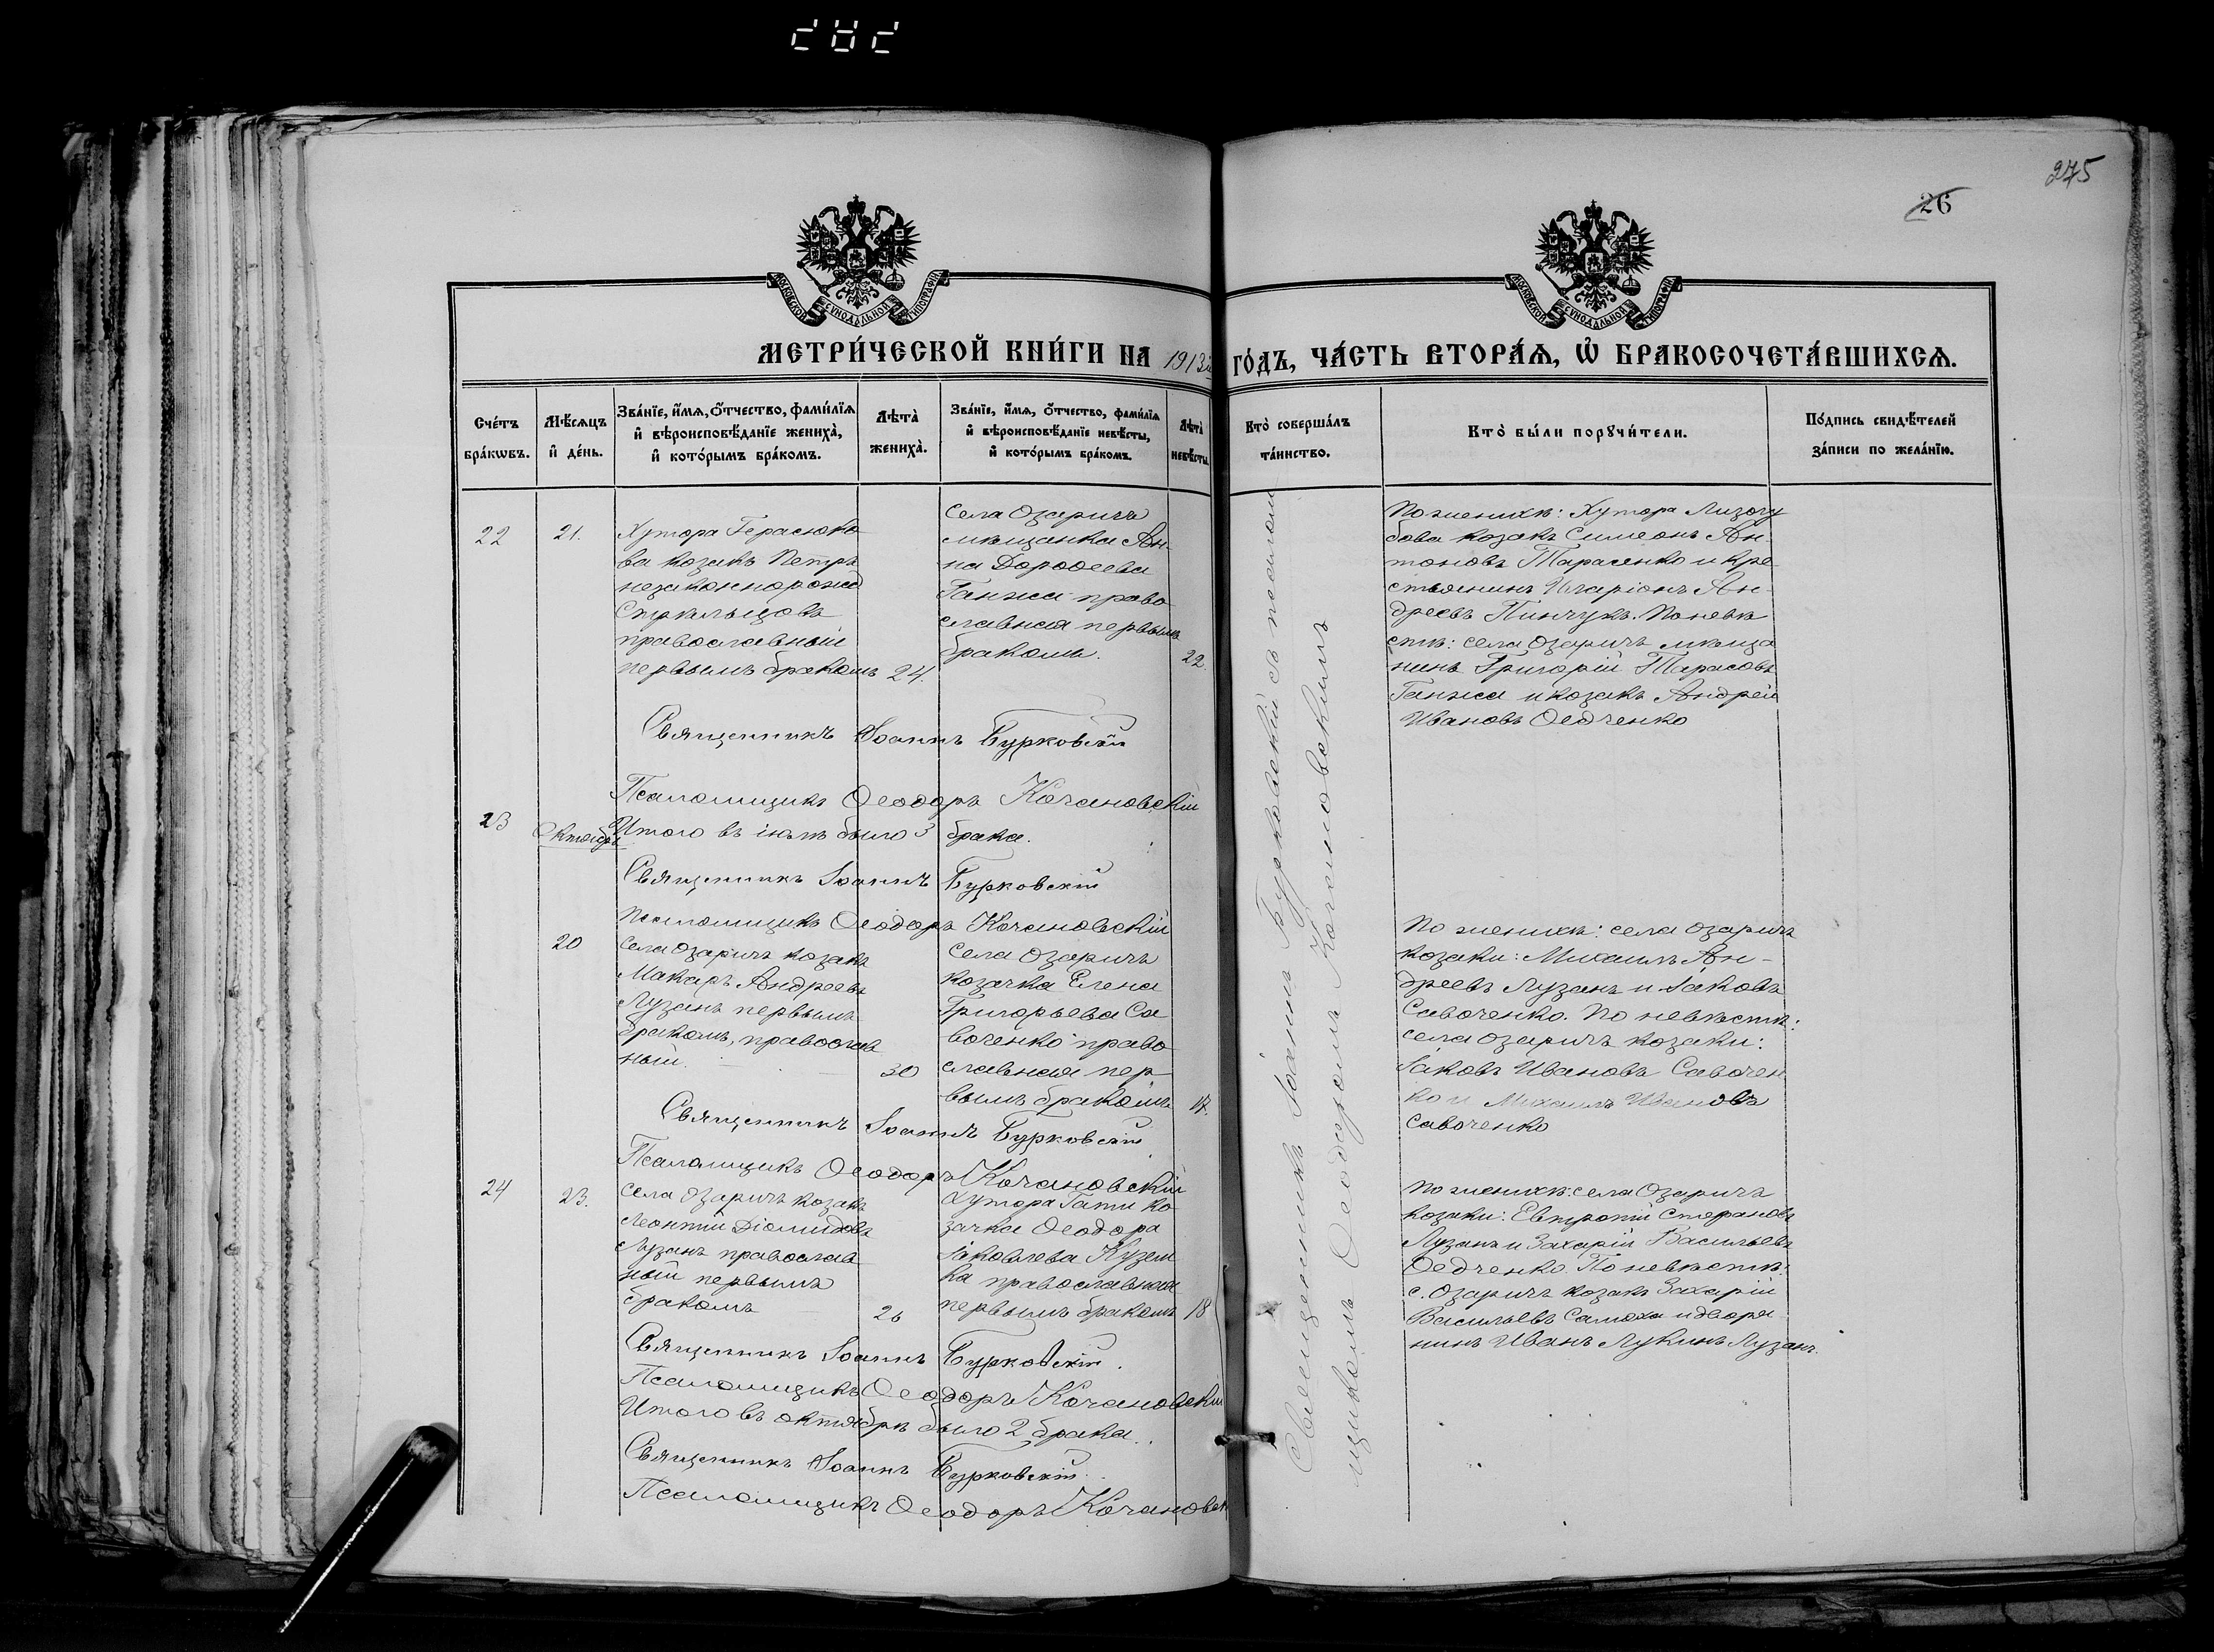 275
26
МОСКОВСКОЙ СѴНОДАЛЬНОЙ ТИПОГРАФІИ
МОСКОВСКОЙ СѴНОДАЛЬНОЙ ТИПОГРАФІИ
МЕТРИ́ЧЕСКОЙ КНИ́ГИ НА 1913й ГО́ДЪ, ЧА́СТЬ ВТОРА́Ѧ, Ѡ҆ БРАКОСОЧЕТА́ВШИХСѦ.
Сче́тъ бра́кѡвъ.
Мѣ́сѧцъ и҆ де́нь.
Зва́нїе, и҆́мѧ, ѻ҆́тчество, фами́лїѧ и҆ вѣроисповѣ́данїе жениха̀, и҆ кото́рымъ бра́комъ.
Лѣта̀ жениха̀.
Зва́нїе, и҆́мѧ, ѻ҆́тчество, фами́лїѧ и҆ вѣроисповѣ́данїе невѣ́сты, и҆ кото́рымъ бра́комъ.
Лѣта̀ невѣ́сты.
Кто̀ соверша́лъ та́инство.
Кто̀ бы́ли порꙋчи́тели.
По́дпись свидѣ́телей за́писи по жела́нїю.
22
21.
Хутора Герасюко
ва козакъ Петръ
незаконнорожд
Стрѣльцовъ
православный
первымъ бракомъ
24.
Села Озаричъ
мѣщанка Ан-
на Дорофеева
Ганжа право
славная первымъ
бракомъ.
22.
По женихѣ: Хутора Лизогу
бова козакъ Симеонъ Ан-
тоновъ Тарасенко и кре
стьянинъ Иларіонъ Ан-
дреевъ Пинчукъ. По невѣ
стѣ: села Озаричъ мѣща
нинъ Григорій Тарасовъ
Ганжа и козакъ Андрей
Ивановъ Ѳедченко
Священникъ Іоаннъ Бурковскій
Псаломщикъ Ѳеодоръ Кочановскій
23
Октябрь
Итого въ іюлѣ было 3 брака.
Священникъ Іоаннъ Бурковскій
Псаломщикъ Ѳеодоръ Кочановскій
20
села Озаричъ козакъ
Макаръ Андреевъ
Лузанъ первымъ
бракомъ, православ
ный.
30
села Озаричъ
козачка Елена
Григорьева Са
воченко право
славная пер
вымъ бракомъ
17.
По женихѣ: села Озаричъ
козаки: Михаилъ Ан-
дреевъ Лузанъ и Іаковъ
Савоченко. По невѣстѣ:
села Озаричъ козаки:
Іаковъ Ивановъ Савочен
ко и Михаилъ Ивановъ
Савоченко
Священникъ Іоаннъ Бурковскій
Псаломщикъ Ѳеодоръ Кочановскій
24
23.
села Озаричъ козакъ
Леонтій Діомидовъ
Лузанъ православ
ный первымъ
бракомъ
26
Хутора Гати ко
зачка Ѳеодора
Іаковлева Кузем
ка православная
первымъ бракомъ
18
По женихѣ: села Озаричъ
козаки: Евтропій Стефановъ
Лузанъ и Захарій Васильевъ
Ѳедченко. По невѣстѣ:
с. Озаричъ козакъ Захарій
Васильевъ Самоха и дворя
нинъ Иванъ Лукинъ Лузанъ.
Священникъ Іоаннъ Бурковскій.
Псаломщикъ Ѳеодоръ Кочановскій
Итого въ октябрѣ было 2 брака.
Священникъ Іоаннъ Бурковскій.
Псаломщикъ Ѳеодоръ Кочановск
Священникъ Іоаннъ Бурковскій съ псалом
щикомъ Ѳеодоромъ Кочановскимъ